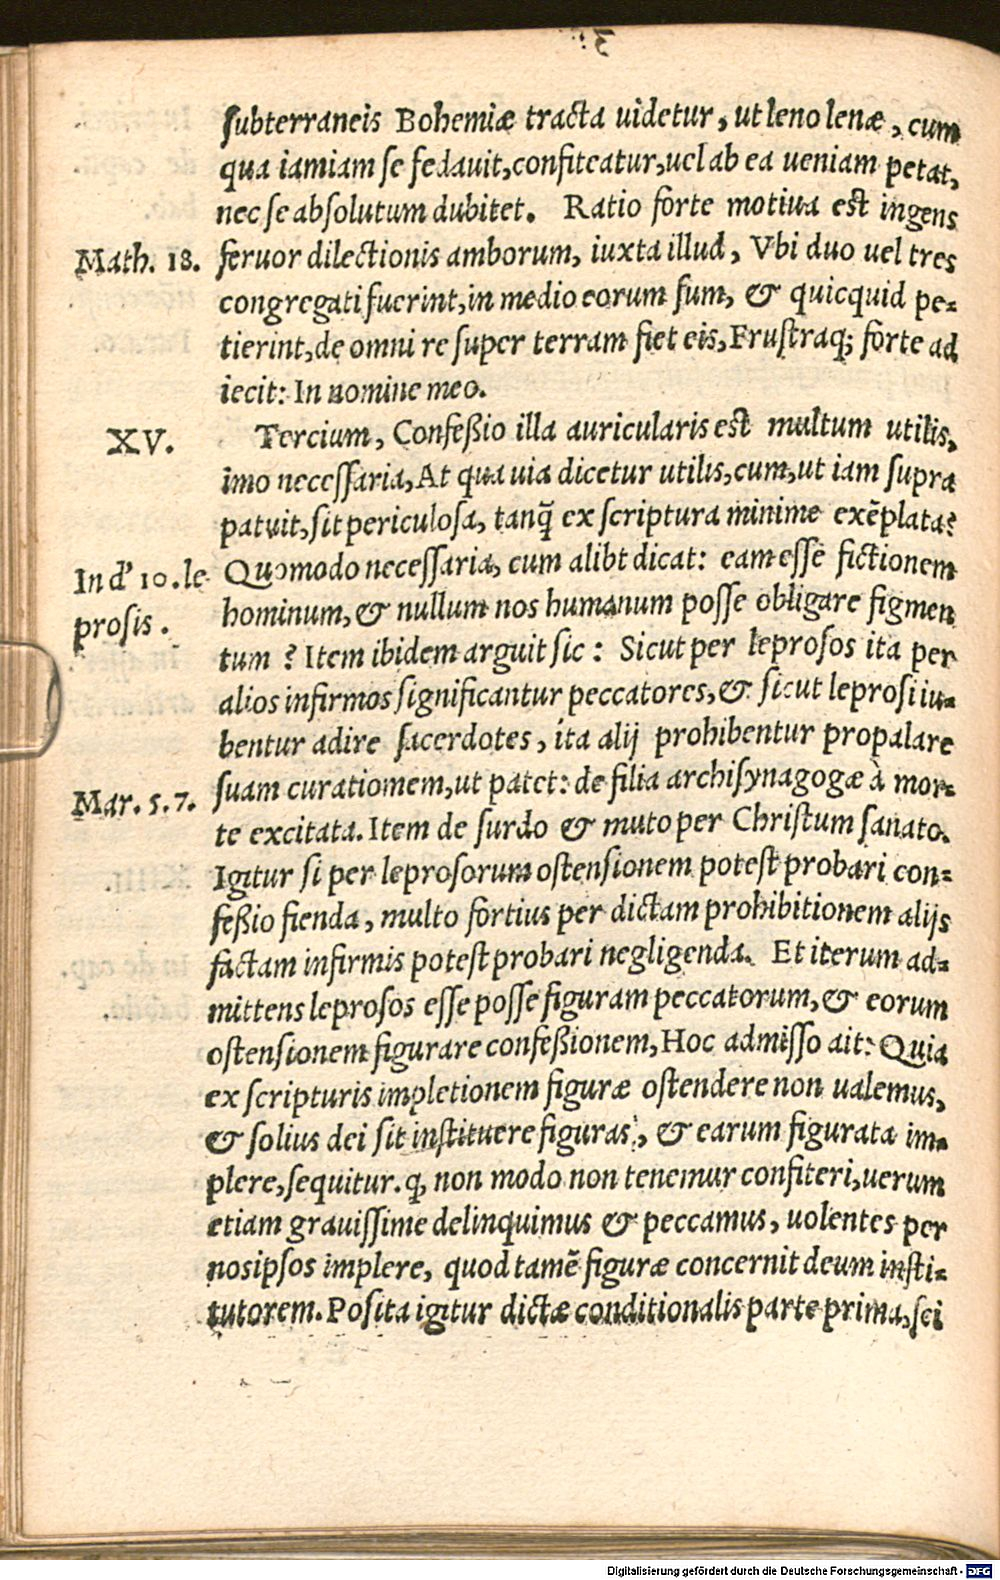 subterraneis Bohemiæ tracta uidetur, ut leno lenæ, cum
qua iamiam se fedauit, confiteatur, uel ab ea ueniam petat,
nec se absolutum dubitet. Ratio forte motiua est ingens
Math. 18. feruor dilectionis amborum, iuxta illud, Vbi duo uel tres
congregati fuerint, in medio eorum sum, & quicquid pe-
tierint, de omni re super terram fiet eis, Frustraq; forte ad
iecit: In nomine meo.
XV. Tercium, Confeßio illa auricularis est multum utilis,
imo necessaria, At qua uia dicetur utilis, cum, ut iam supra
patuit, sit periculosa, tanq̃ ex scriptura minime exẽplata?
In d' 10. le Quomodo necessaria, cum alibi dicat: eam esse fictionem
prosis. hominum, & nullum nos humanum posse obligare figmen
tum? Item ibidem arguit sic: Sicut per leprosos ita per
alios infirmos significantur peccatores, & sicut leprosi iu-
bentur adire sacerdotes, ita alij prohibentur propalare
Mar. 5.7. suam curationem, ut patet: de filia archisynagogæ à mor-
te excitata. Item de surdo & muto per Christum sanato.
Igitur si per leprosorum ostensionem potest probari con-
feßio fienda, multo fortius per dictam prohibitionem alijs
factam infirmis potest probari negligenda. Et iterum ad-
mittens leprosos esse posse figuram peccatorum, & eorum
ostensionem figurare confeßionem, Hoc admisso ait: Quia
ex scripturis impletionem figuræ ostendere non ualemus,
& solius dei sit instituere figuras, & earum figurata im-
plere, sequitur. ꝙ non modo non tenemur confiteri, uerum
etiam grauissime delinquimus & peccamus, uolentes per
nosipsos implere, quod tamẽ figuræ concernit deum insti-
tutorem. Posita igitur dictæ conditionalis parte prima, sci
Digitalisierung gefördert durch die Deutsche Forschungsgemeinschaft - DFG